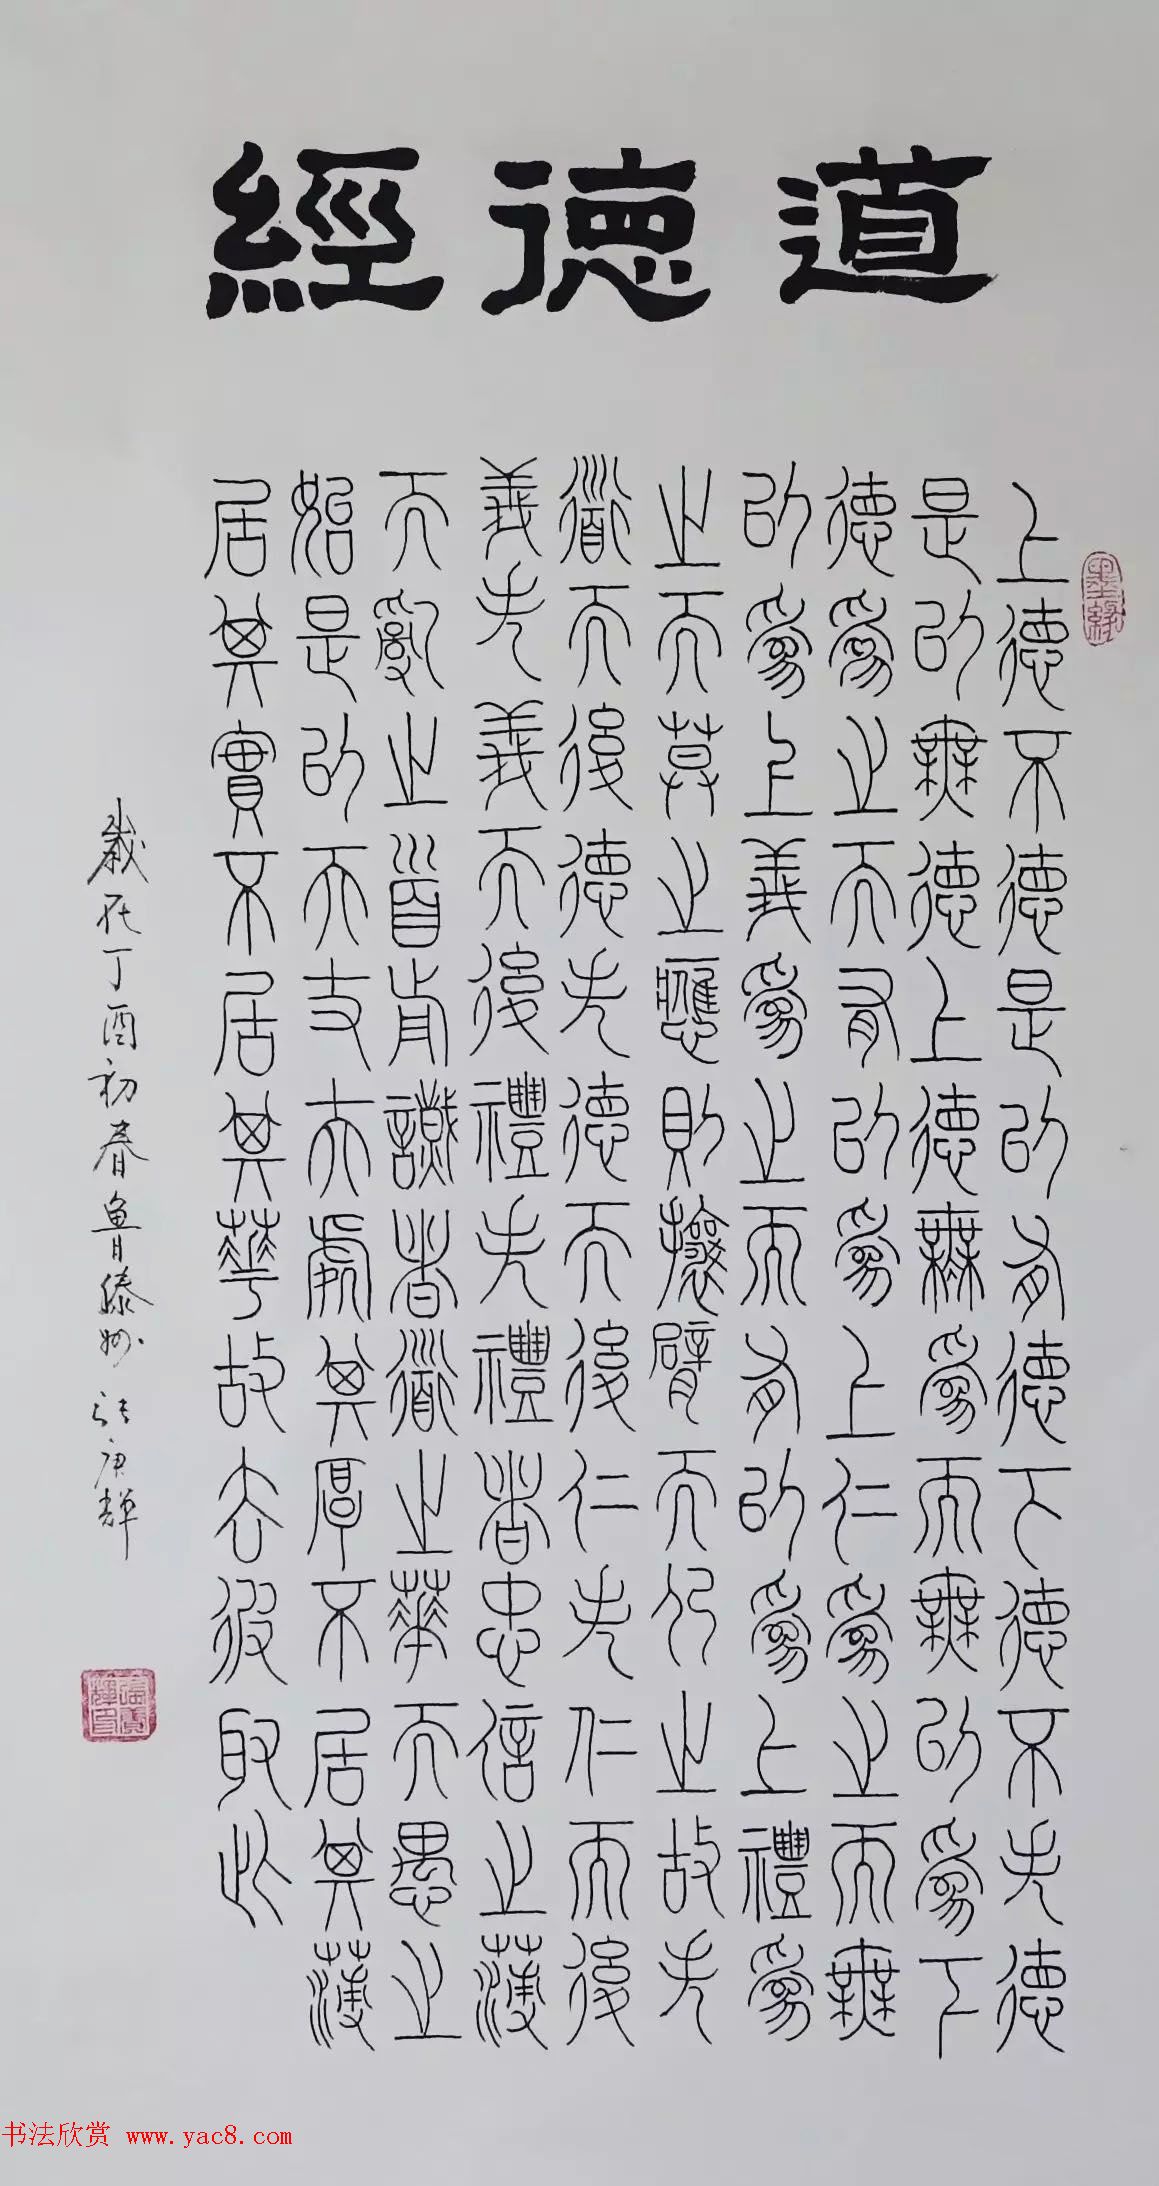 道德經
墨緣
上德不德是以有德下德不失德
是以無德上德無為而無以為下
德為之而有以為上仁為之而無
以為上義為之而有以為上禮為
之而莫之應則攘臂而扔之故失
道而後德失德而後仁失仁而後
義失義而後禮失禮者忠信之薄
而亂之首前識者道之華而愚之
始是以大丈夫處其厚不居其薄
居其實不居其華故去彼取此
歲在丁酉初春魯滕州張輝
书法欣赏 www.yac8.com